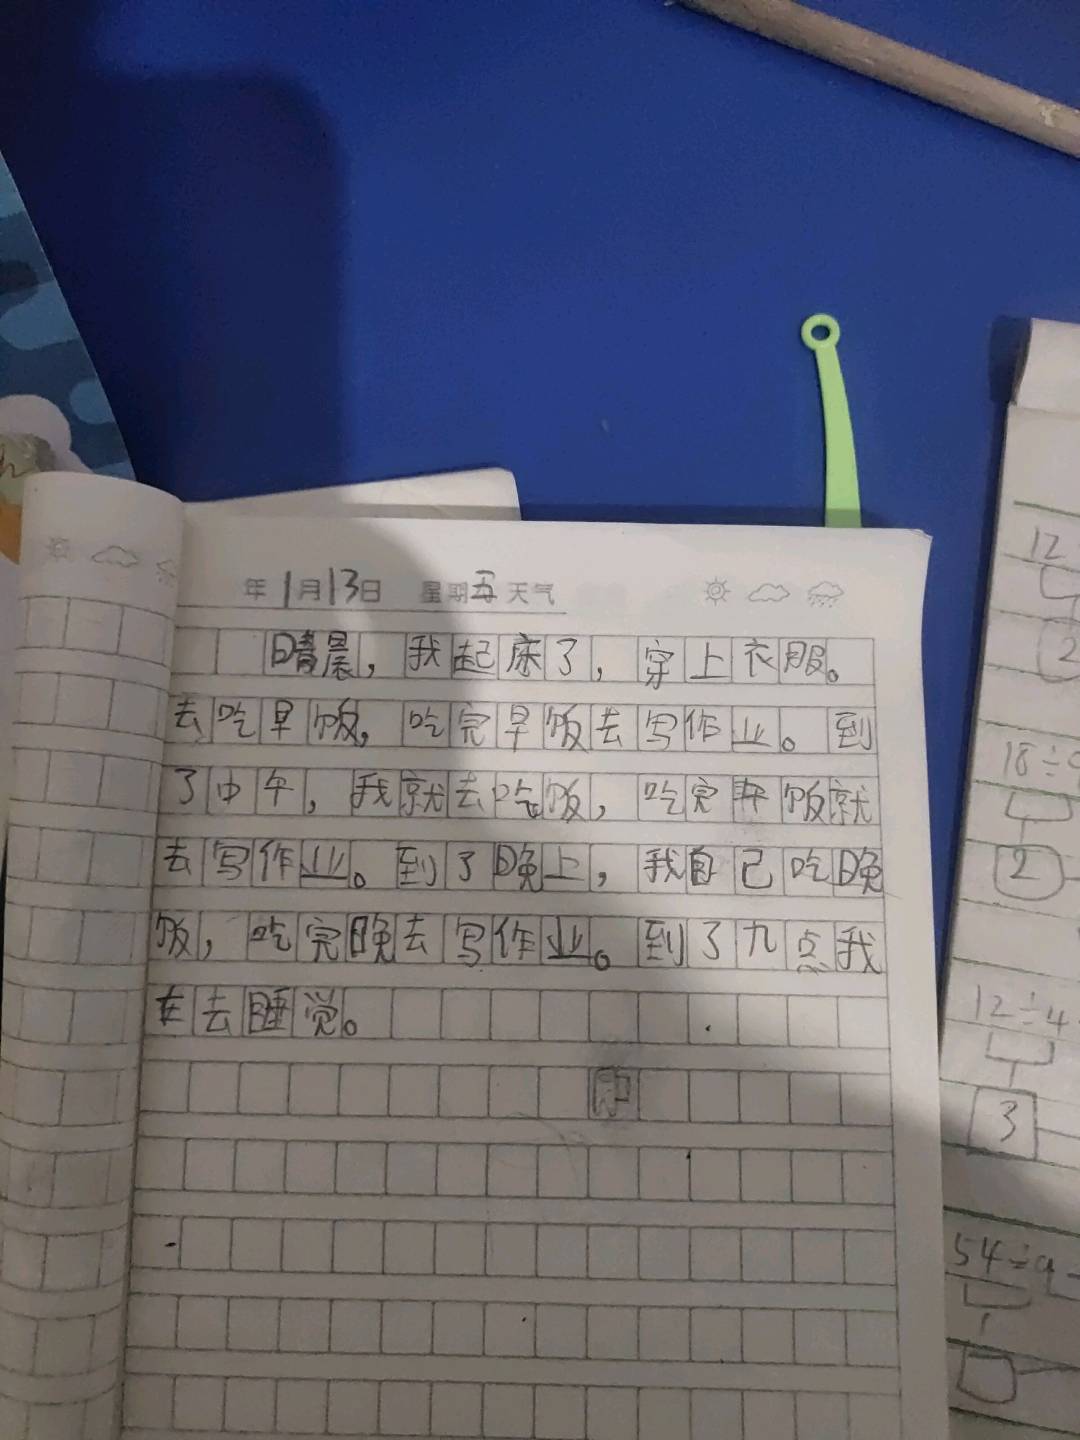 年1月13日 星期五天气
晴晨,我起床了,穿上衣服。
去吃早饭,吃完早饭去写作业。到
了中午,我就去吃饭,吃完午饭就
去写作业。到了晚上,我自己吃晚
饭,吃完晚去写作业。到了九点我
在去睡觉。
12
2
18÷9
2
12÷4
3
54÷9